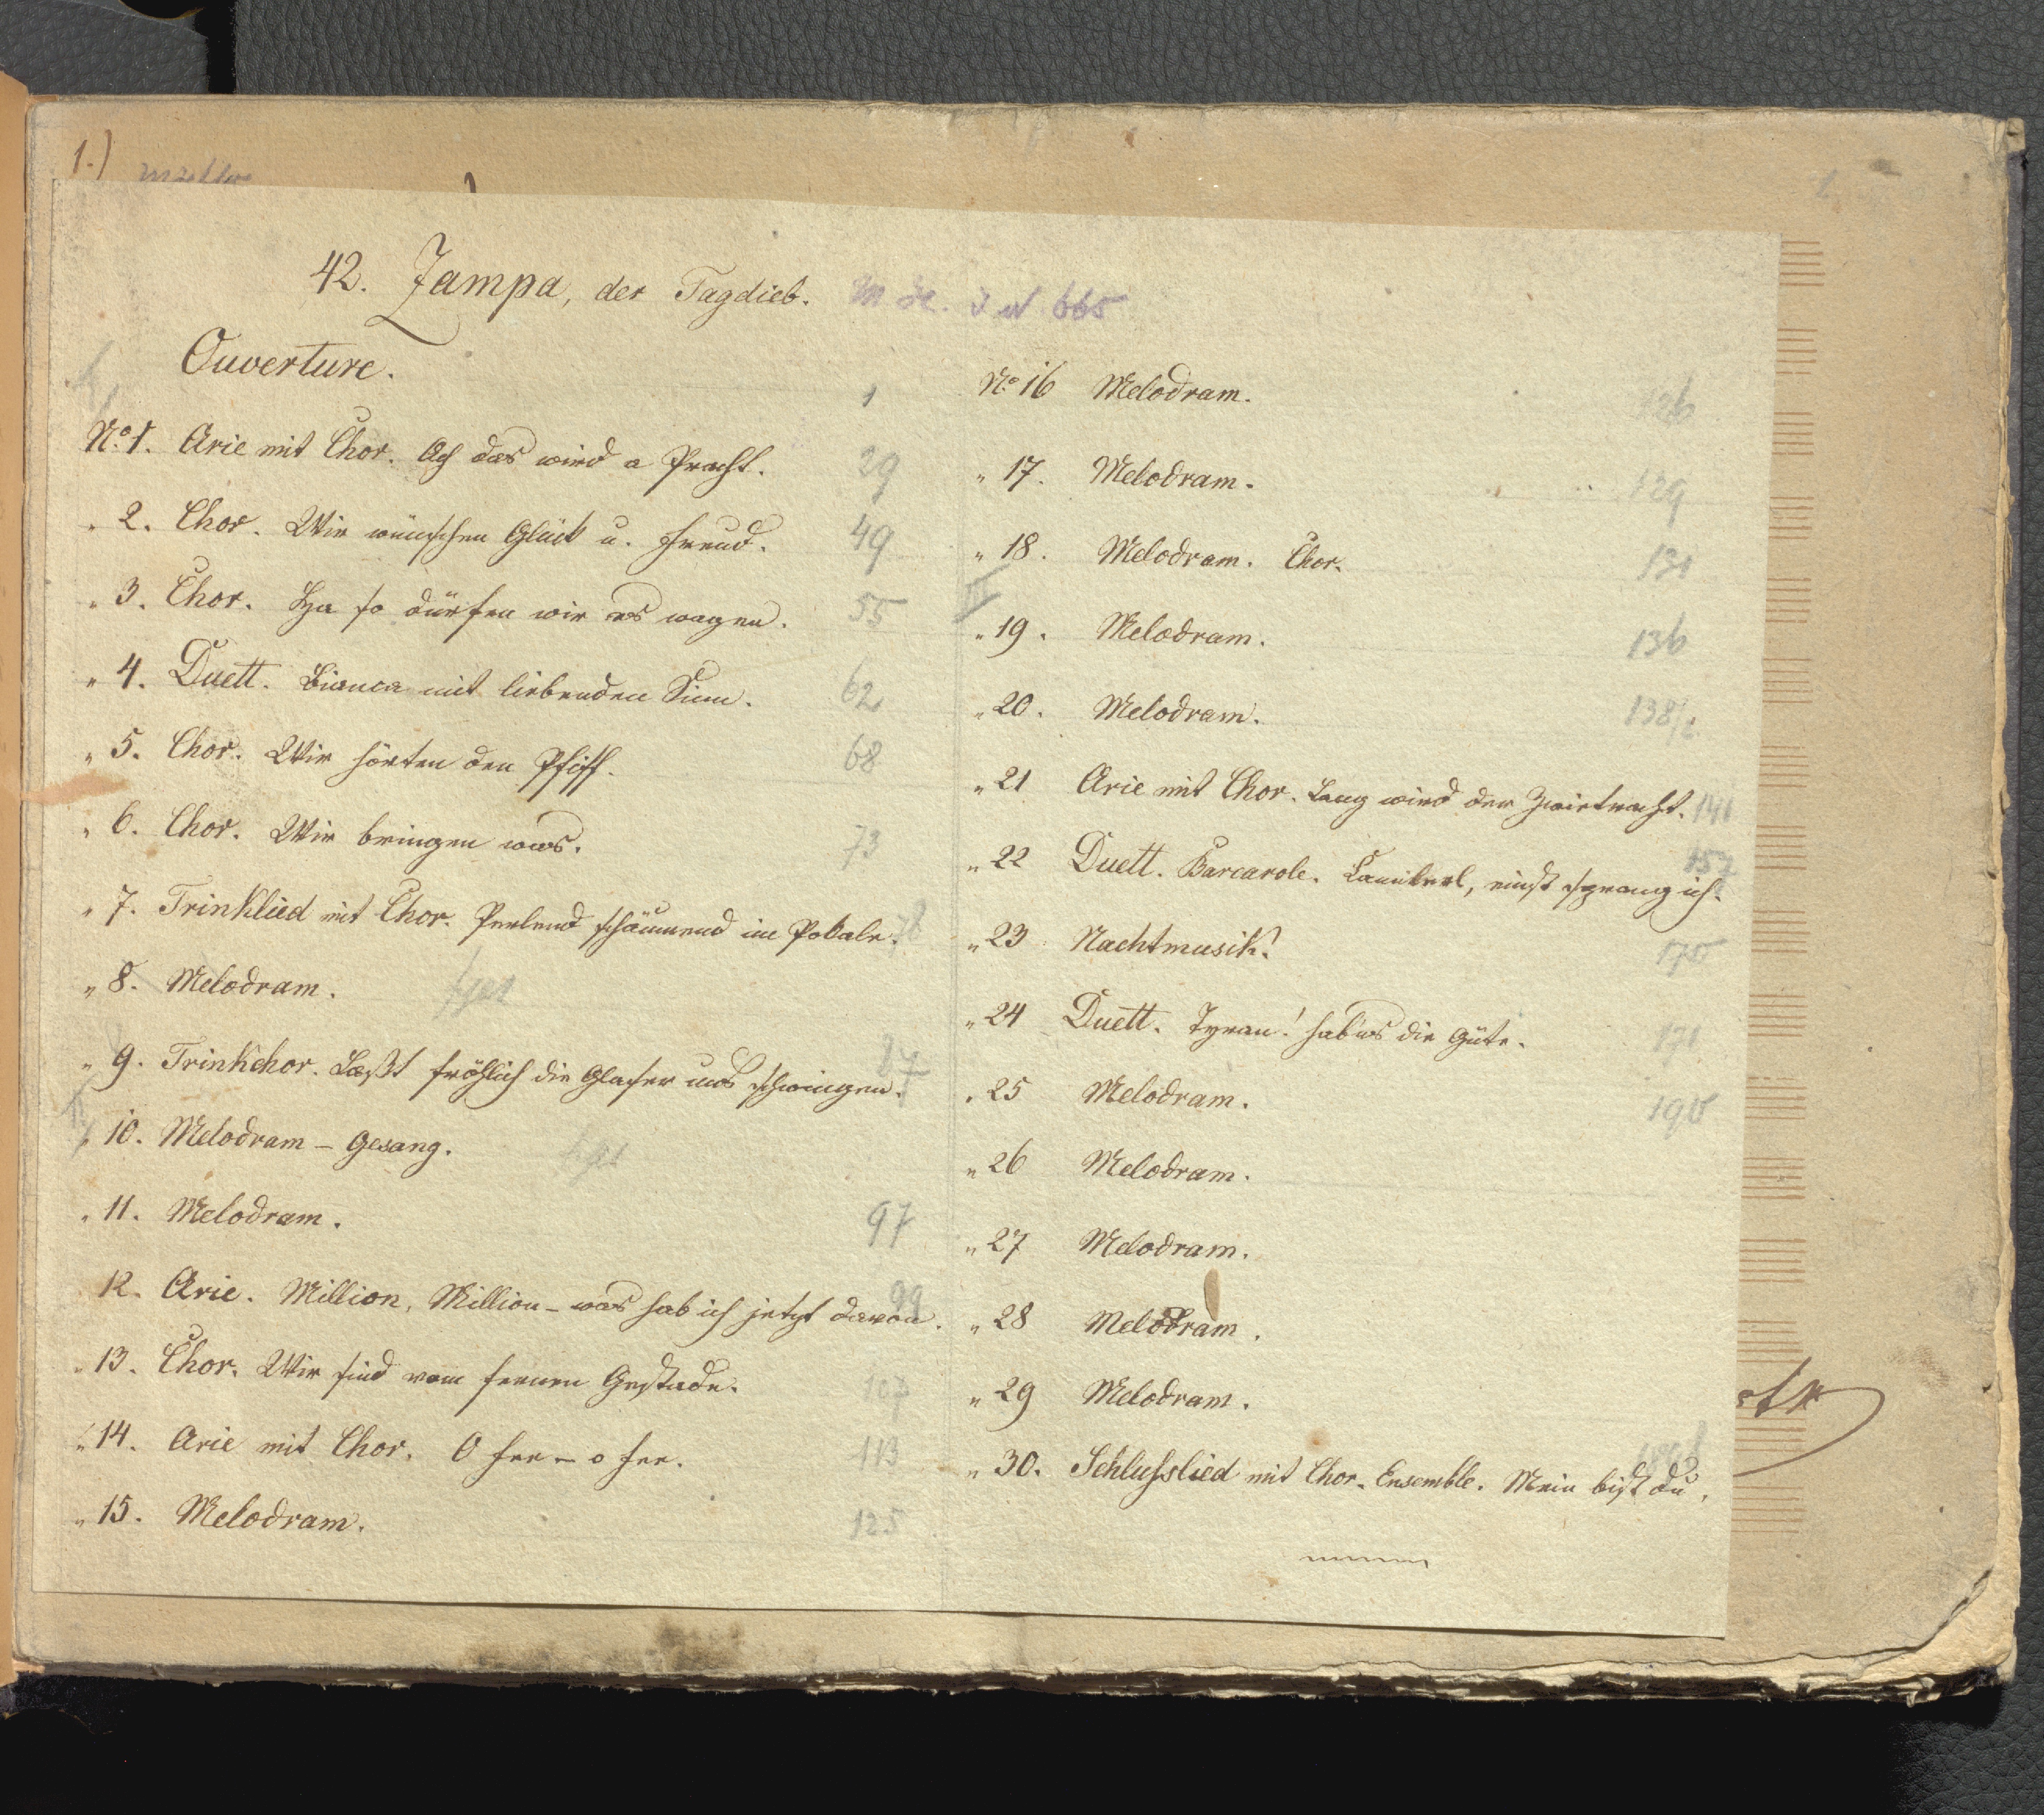 1.)
42. Zampa, der Tagdieb.
Ouverture. 1
No. 1. Arie mit Chor. Ach das wird a Pracht. 29
" 2. Chor. Wir wünschen Glück u. Freud. 49
" 3. Chor. Ha so dürfen wir es wagen. 55
" 4. Duett. Bianca mit liebenden Sinn. 62
" 5. Chor. Wir hörten den Pfiff. 68
" 6. Chor. Wir bringen was. 73
" 7. Trinklied mit Chor. Perlend schäumend im Pokale. 78
" 8. Melodram.
" 9. Trinkchor. Laßt fröhlich die Glaser uns schwingen. 87
" 10. Melodram – Gesang.
" 11. Melodram. 97
12. Arie. Million, Million – was hab ich jetzt davon. 99
" 13. Chor. Wir sind vom fernen Gestade. 107
" 14. Arie mit Chor. O Fee – o Fee. 113
" 15. Melodram. 125
No. 16 Melodram. 126
" 17. Melodram. 129
" 18. Melodram. Chor. 131
III
" 19. Melodram. 136
" 20. Melodram. 138/2
" 21 Arie mit Chor. Lang wird der Zwietracht. 141
" 22 Duett. Barcarole. Camilerl, einst sprang ich. 157
" 23 Nachtmusik. 170
" 24 Duett. Tyran! hab'ns die Güte. 171
" 25 Melodram. 190
" 26 Melodram.
" 27 Melodram.
" 28 Melodram.
" 29 Melodram.
" 30. Schlußlied mit Chor. Ensemble. Mein bist du.